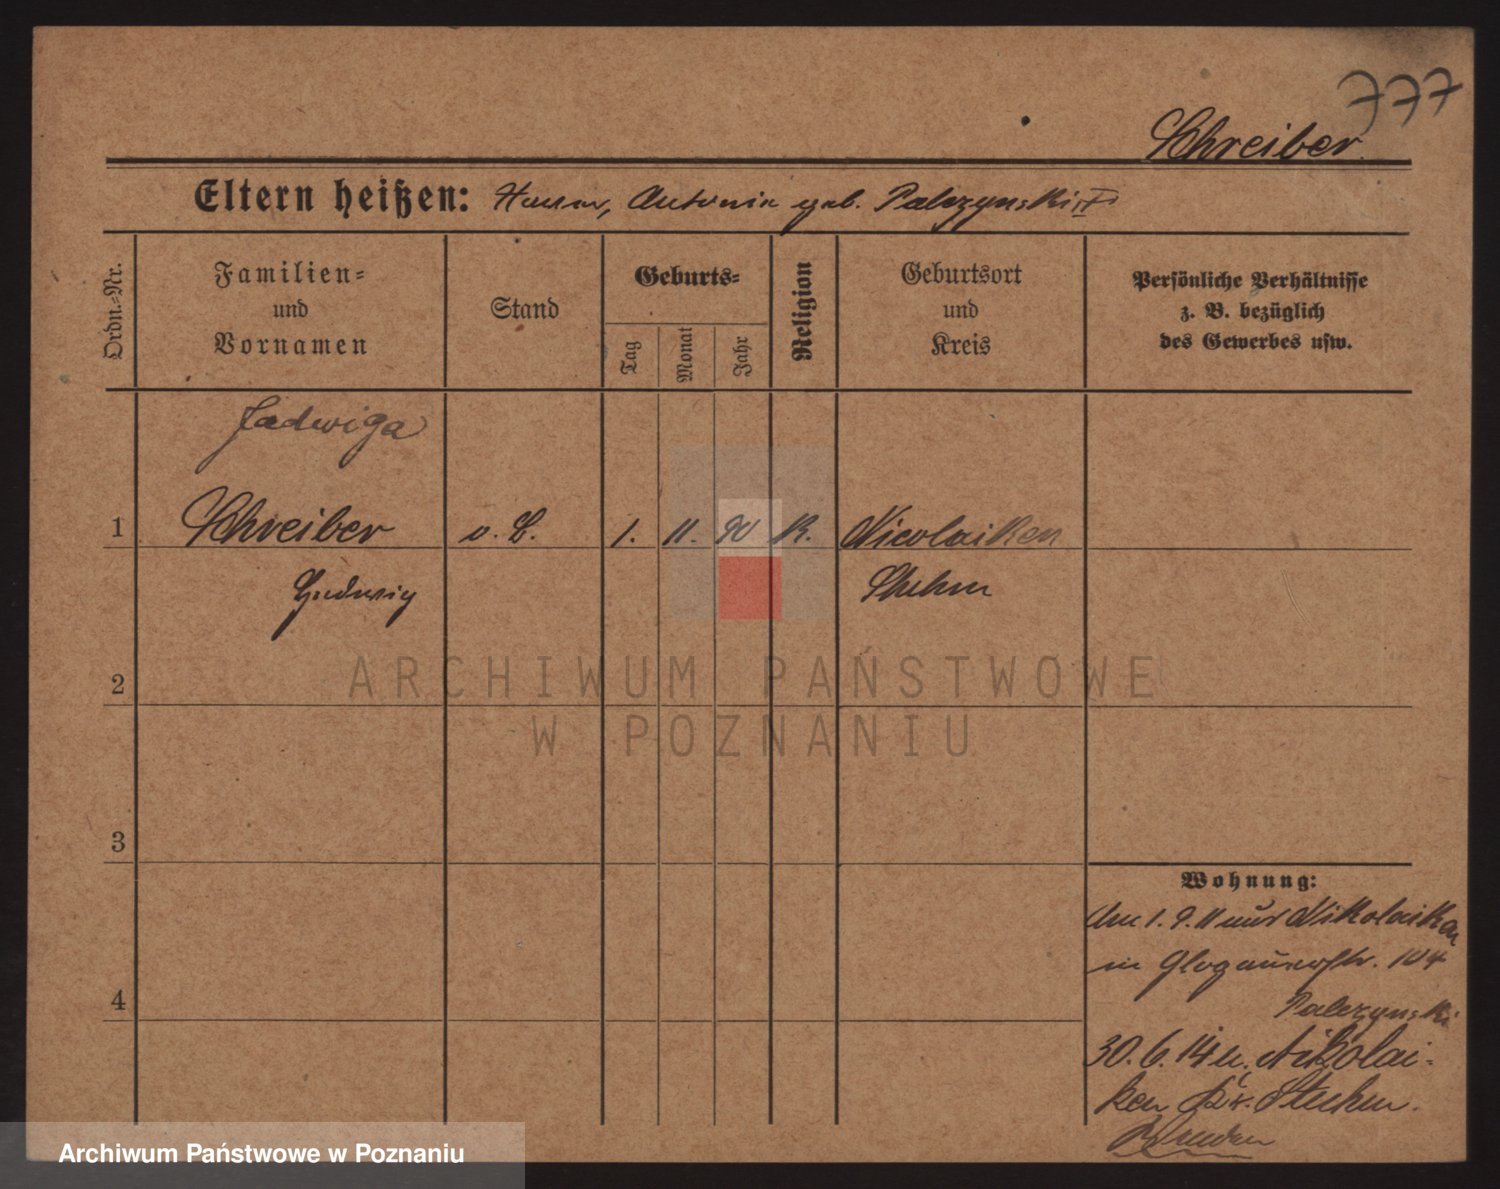 777
Schreiber
Eltern heißen: Antonia geb. Palczynski
Ordn.-Nr.
Familien-
und
Vornamen
Stand
Geburts-
Tag
Monat
Jahr
Religion
Geburtsort
und
Kreis
Persönliche Verhältnisse
z. B. bezüglich
des Gewerbes usw.
Jadwiga
1 Schreiber o. B. 1. 11. 90 K. Nicolaiken
Hedwig Stuhm
2
ARCHIWUM PAŃSTWOWE
W POZNANIU
3
Wohnung:
Am 1. 9. 11 aus Nikolaiken
in Glogauerstr. 104
4
Palczynski
30. 6. 14 n. Nikolai-
ken Kr. Stuhm.
Archiwum Państwowe w Poznaniu